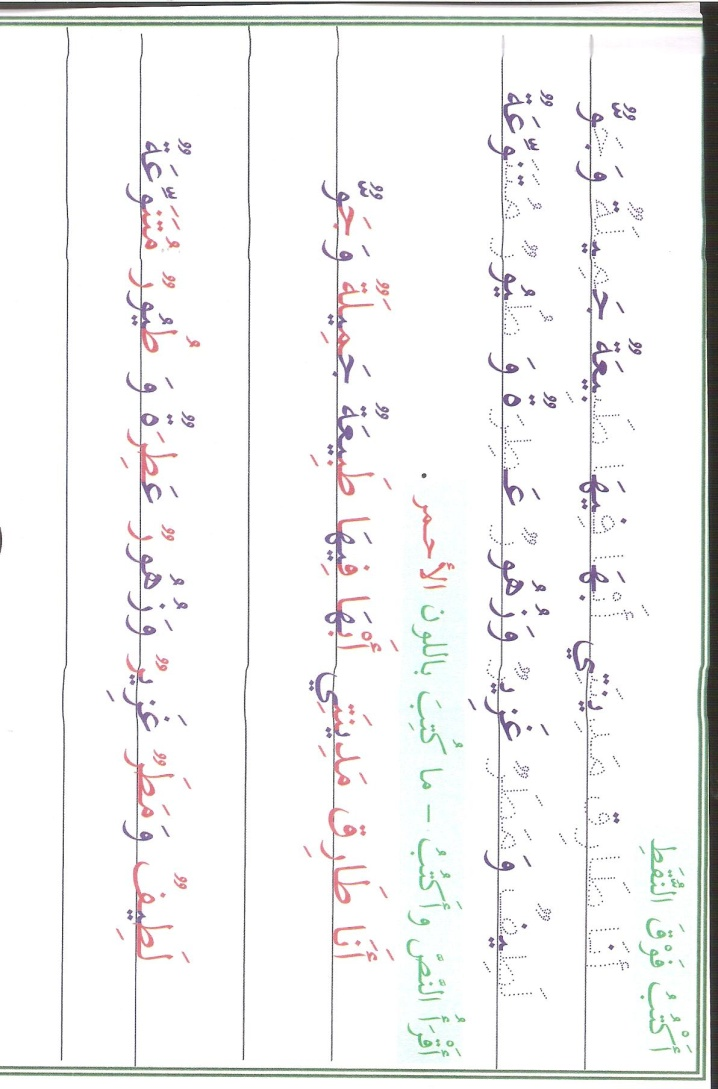 أَكْتُبُ فَوْقَ النُّقَطِ
أَنَا طَارِق مَدِينَتِي أَبْهَا فِيهَا طَبِيعَةٌ جَمِيلَةٌ وَجَوٌّ
لَطِيفٌ وَمَطَرٌ غَزِيرٌ وَزُهُورٌ عَطِرَةٌ وَ طُيُورٌ مُتَنَوِّعَةٌ
أَقْرَأُ النَّصَّ وأَكْتُبُ – ما كُتِبَ باللون الأحمر .
أَنَا طَارِق مَدِينَتِي أَبْهَا فِيهَا طَبِيعَةٌ جَمِيلَةٌ وَجَوٌّ
لَطِيفٌ وَمَطَرٌ غَزِيرٌ وَزُهُورٌ عَطِرَةٌ وَ طُيُورٌ مُتَنَوِّعَةٌ